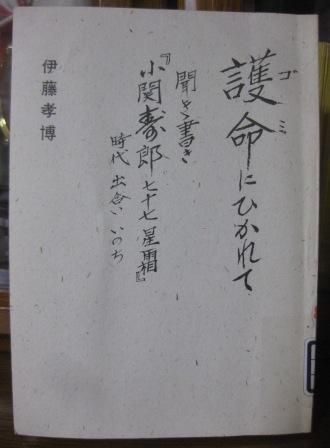 護命にひかれて
ゴミ
聞き書き
『小関寿郎七十七星霜』
時代 出会い いのち
伊藤孝博